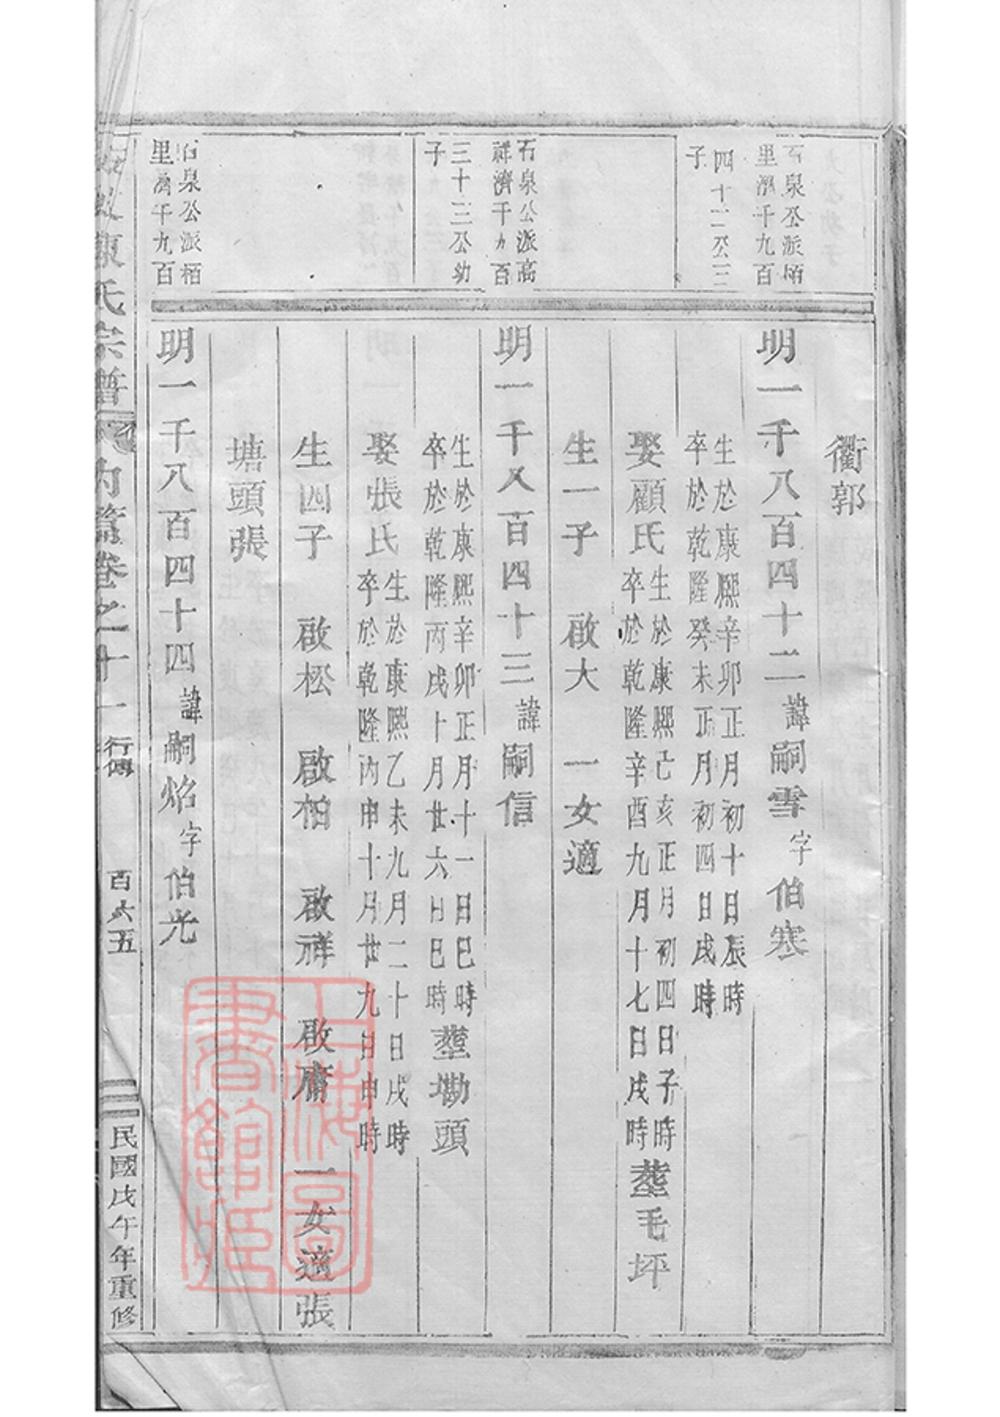 石泉公派栢
里濟千九百
四十二公三
子
石泉公派高
祥濟千九百
三十三公幼
子
石泉公派栢
里濟千九百
衢郭
明一千八百四十二諱嗣雪字伯寒
生於康熙辛卯正月初十日辰時
卒於乾隆癸未正月初四日戌時
娶顧氏
生於康熙己亥正月初四日子時
卒於乾隆辛酉九月十七日戌時
塟毛坪
生一子 啟大 一女適
明一千八百四十三諱嗣信
生於康熙辛卯正月十一日巳時
卒於乾隆丙戌十月廿六日巳時
塟塘頭
娶張氏
生於康熙乙未九月二十日戌時
卒於乾隆丙申十月廿九日申時
生四子 啟松 啟柏 啟祥 啟庸 一女適張
塘頭張
明一千八百四十四諱嗣焰字伯光
陳氏宗譜 內篇卷之十一 行傳 百六五 民國戊午年重修
上海圖書館藏